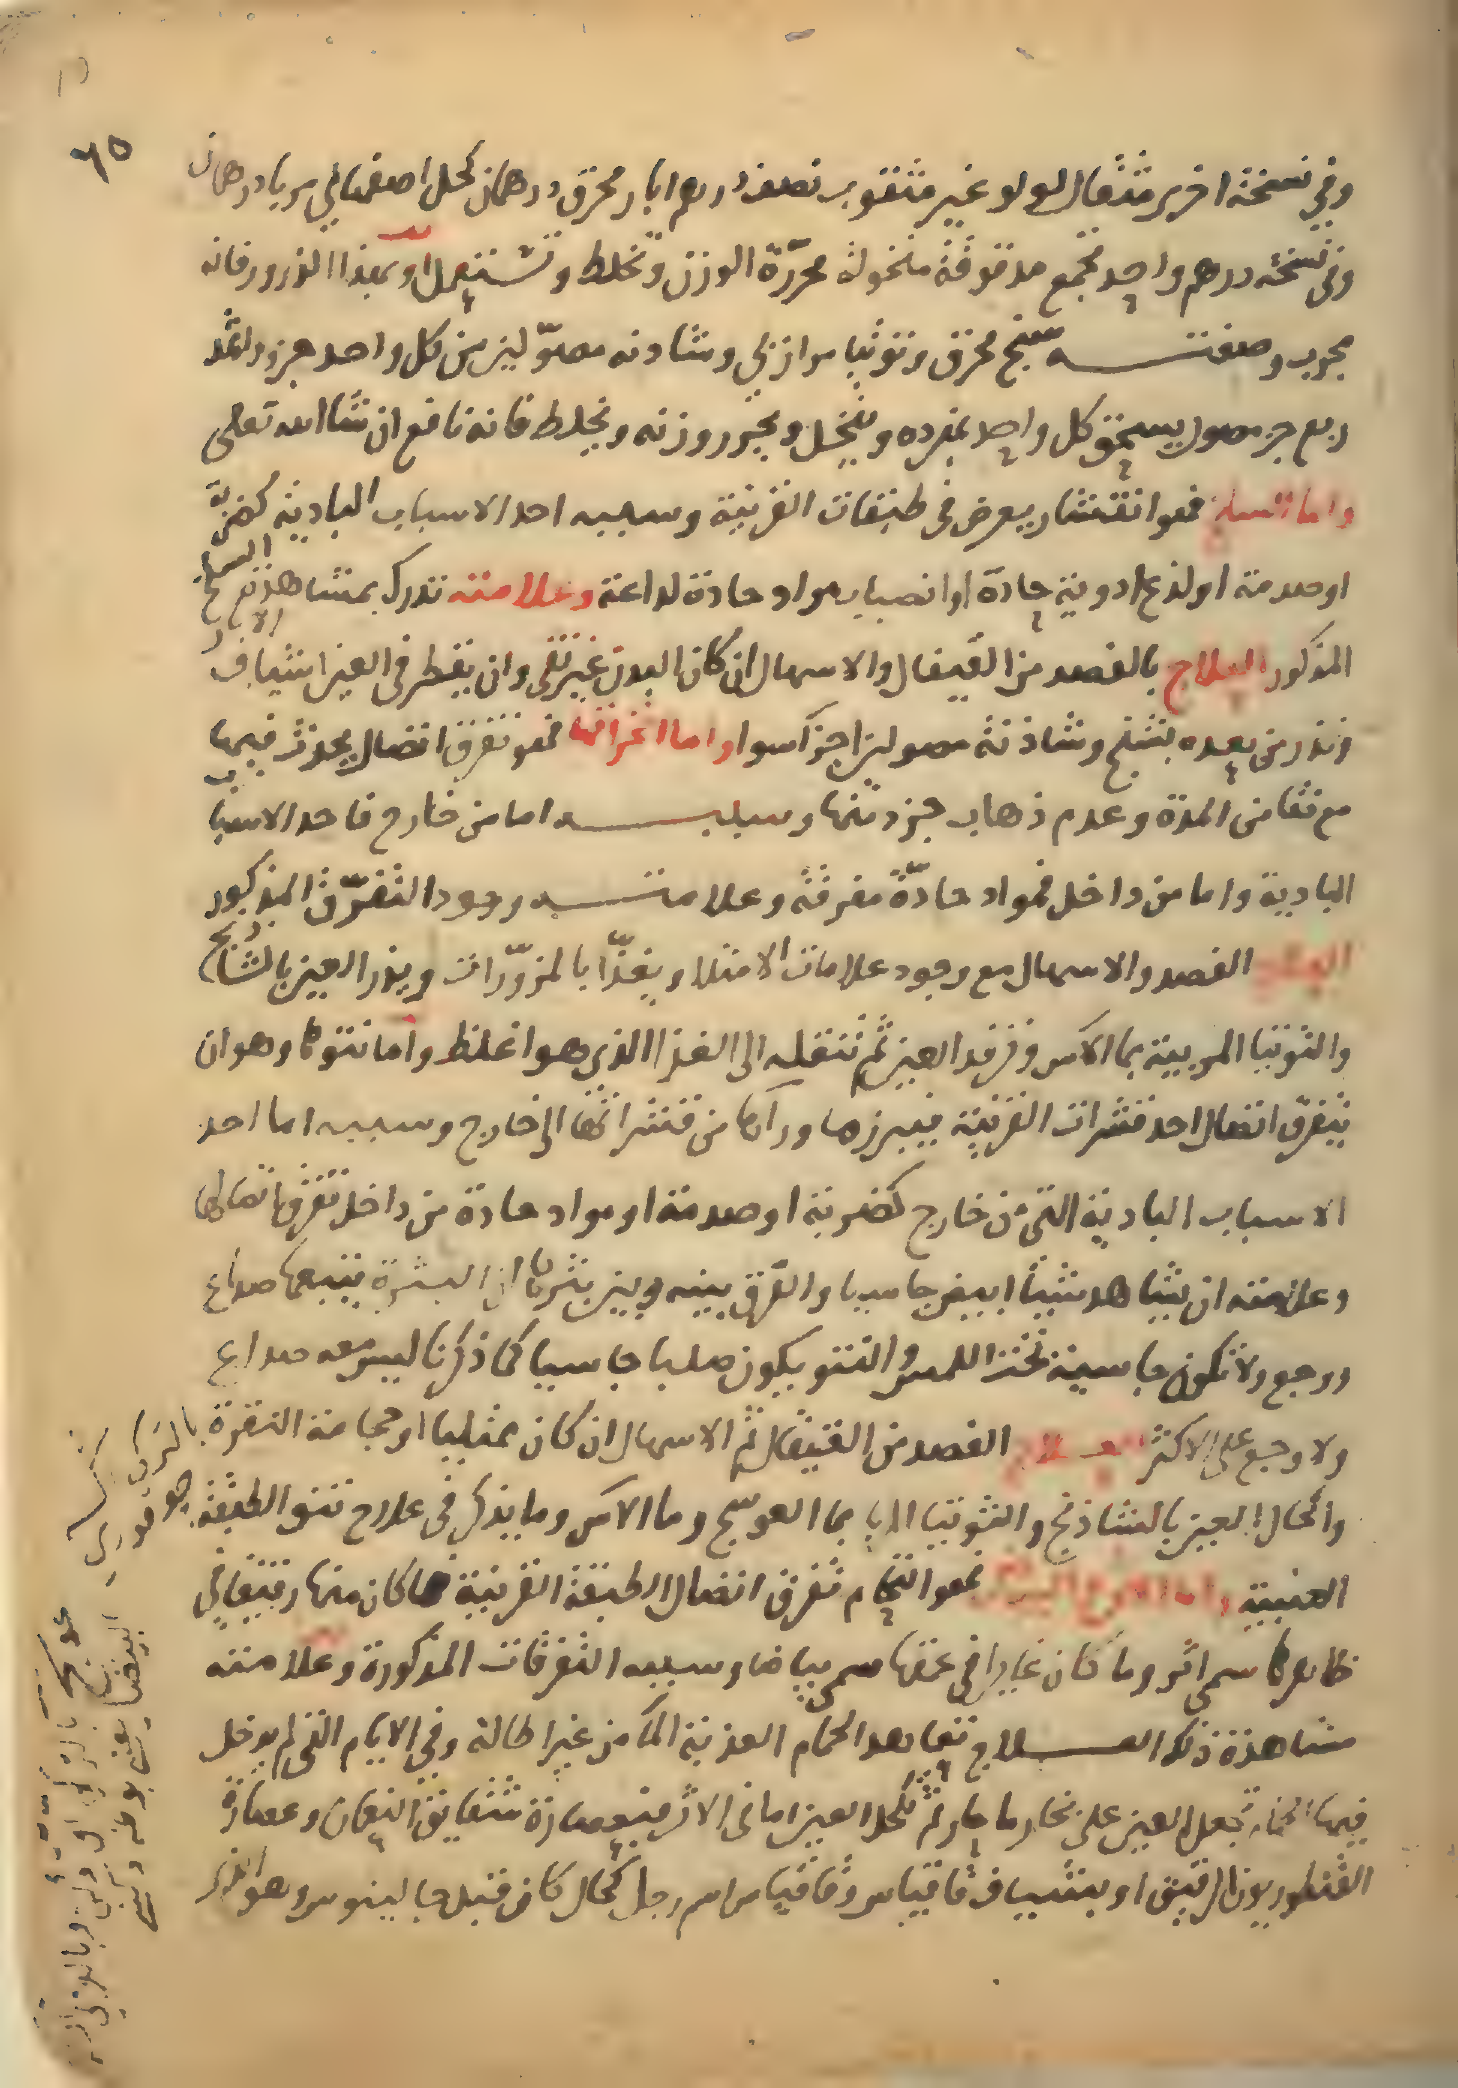 ٦٥
وفي نسخة اخرى مثقال لولو غير مثقوب نصف درهم ابار محرق درهمان كحل اصفهاني مربا درهمان
وفي نسخة درهم واحد تجمع مدقوقة منخولة محررة الوزن وتخلط وتستعمل او بهذا الذرور فانه
مجرب وصفته سبنج محرق وتوتيا مرازبي وشادنه مصولين من كل واحد جزو اثمد
ربع جز مصول يسحق كل واحد بمفرده وينخل ويحرر وزنه ويخلط فانه نافع ان شا الله تعلى
واما السلخ فهو انقشار يعرض في طبقات القرنية وسببه احد الاسباب البادية كضربة
او صدمة او لذع ادوية حادة او انصباب مواد حادة لداعة وعلامته تدرك بمشاهدة السلخ
المذكور العلاج بالفصد من القيفال والاسهال ان كان البدن غير نقي وان يقطر في العين اشياف الابار
وتذر من بعده بنشنج وشاذنة مصولين اجزا سوا واما انخراقها فهو تفرق اتصال يحدث فيها
مع تقامن المدة وعدم ذهاب جزء منها وسببه اما من خارج فاحد الاسباب
البادية واما من داخل فمواد حادة مفرقة وعلامته وجود التفرق المذكور
العلاج الفصد والاسهال مع وجود علامات الامتلا ويغذا بالمزورات ويذر العين بالشاذنج
والتوتيا المربية بما الاس وترفد العين ثم تنقله الى الغذا الذي هو اغلظ واما نتوها وهو ان
يتفرق اتصال احد قشرات القرنية فيبرز ما وراها من قشراتها الى خارج وسببه اما احد
الاسباب البادية التي من خارج كضربة او صدمة او مواد حادة من داخل تفرق اتصالها
وعلامته ان يشاهد شيئا ابيض جاسيا والفرق بينه وبين بثرها ان البثرة يتبعها صداع
ووجع ولا تكون جاسية تحت اللمس والنتو يكون صلبا جاسيا كما ذكرنا ليس معه صداع
ولا وجع على الاكثر العلاج الفصد من القيفال ثم الاسهال ان كان ممتليا او حجامة النقرة
واكحال العين بالشاذنج والتوتيا المربا بما العوسج وما الاس وما يذكر في علاج نتو الطبقة
العنبية واما الاثر والبياض فهو التحام تفرق اتصال الطبقة القرنية فما كان منها رقيقا في
ظاهرها سمي اثر وما كان غايرا في عمقها سمي بياضا وسببه التفرقات المذكورة وعلامته
مشاهدة ذلك العلاج تعاهد الحمام العذبة الما من غير اطالة وفي الايام التي لم يدخل
فيها الحمام تجعل العين على بخار ما حار ثم تكحل العين اما في الاثر فبعصارة شقايق النعمان وعصارة
القنطوريون الرقيق او بشياف قاقياس وقاقياس اسم رجل كحال كان قبل جالينوس وهو الذي